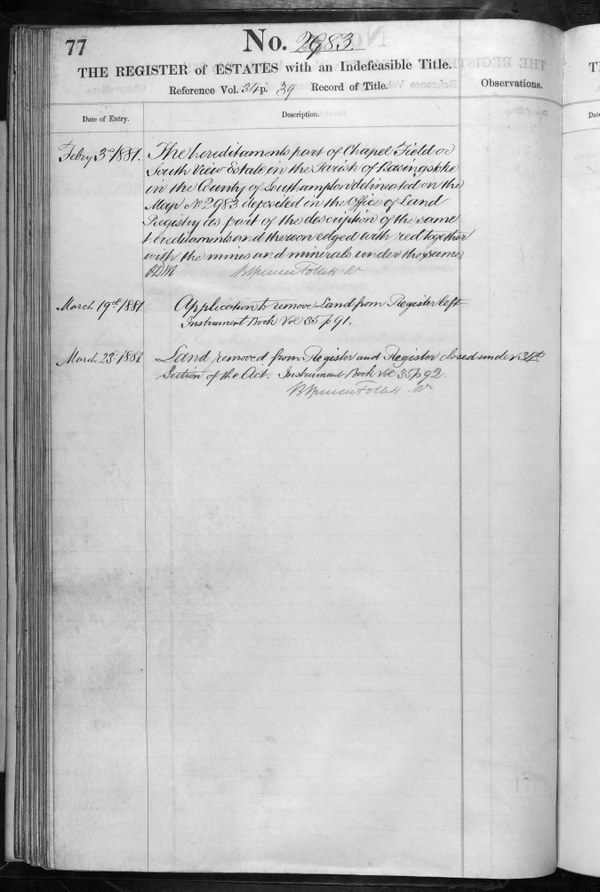 77
No. 2983
THE REGISTER of ESTATES with an Indefeasible Title.
Reference Vol. 34 p. 39 Record of Title.
Observations.
Date of Entry.
Description.
Febry 3rd 1881. The hereditaments part of Chapel Field or
South View Estate in the Parish of Basingstoke
in the County of Southampton delineated on the
Map No 2983 deposited in the Office of Land
Registry as part of the description of the same
hereditaments and thereon edged with red together
with the mines and minerals under the same
R Spencer Follett
March 19th 1881. Application to remove Land from Register left
Instrument Book Vol 35 p 91.
March 23 1881 Land removed from Register and Register closed under 34th
Section of the Act. Instrument Book Vol 35 p 92.
R Spencer Follett